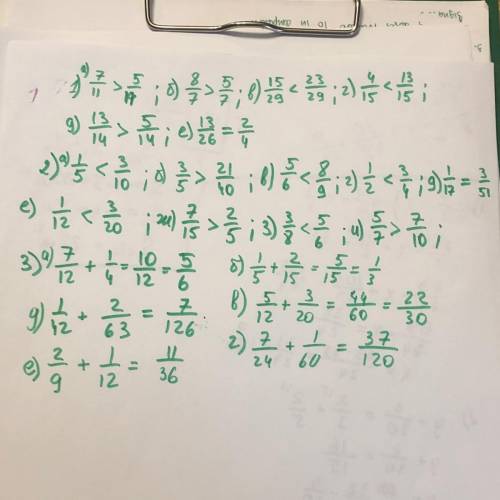 1) а) 7/11 > 5/17 ; б) 8/7 > 5/7 ; в) 15/29 < 23/29 ; г) 4/15 < 13/15 ;
д) 13/14 > 5/14 ; е) 13/26 = 2/4
2) а) 1/5 < 3/10 ; б) 3/5 > 21/40 ; в) 5/6 < 8/9 ; г) 1/2 < 3/4 ; д) 1/17 = 3/51
е) 1/12 < 3/20 ; ж) 7/15 > 2/5 ; з) 3/8 < 5/6 ; и) 5/7 > 7/10 ;
3) а) 7/12 + 1/4 = 10/12 = 5/6 б) 1/5 + 2/15 = 5/15 = 1/3
д) 1/42 + 2/63 = 7/126 в) 5/12 + 3/20 = 44/60 = 22/30
е) 2/9 + 1/12 = 11/36 г) 7/24 + 1/60 = 37/120